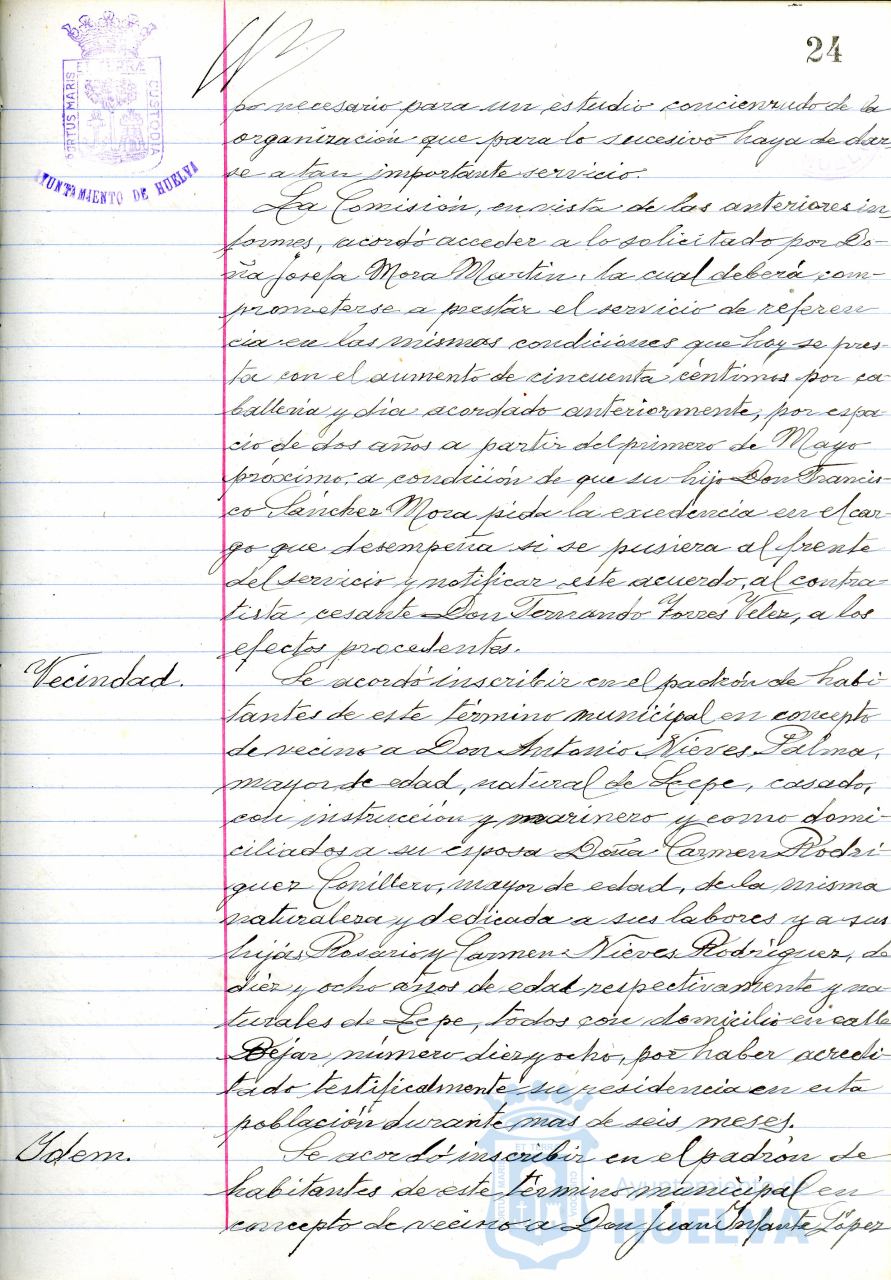 24
PORTUS MARIS ET TERRÆ CUSTODIA
AYUNTAMIENTO DE HUELVA
po necesario para un estudio concienzudo de la
organización que para lo sucesivo haya de dar-
se a tan importante servicio.
La Comisión, en vista de las anteriores in-
formes, acordó acceder a lo solicitado por Do-
ña Josefa Mora Martin, la cual deberá com-
prometerse a prestar el servicio de referen
cia en las mismas condiciones que hoy se pres-
ta con el aumento de cincuenta céntimos por ca-
ballería y día acordado anteriormente, por espa
cio de dos años a partir del primero de Mayo
próximo, a condición de que su hijo Don Francis-
co Sánchez Mora pida la excedencia en el car-
go que desempeña si se pusiera al frente
del servicio y notificar este acuerdo, al contra-
tista cesante Don Fernando Torres Velez, a los
efectos procedentes.
Vecindad.
Se acordó inscribir en el padrón de habi-
tantes de este término municipal en concepto
de vecino a Don Antonio Nieves Palma,
mayor de edad, natural de Lepe, casado,
con instrucción y marinero y como domi-
ciliados a su esposa Doña Carmen Rodri-
guez Conillero, mayor de edad, de la misma
naturaleza y dedicada a sus labores y a sus
hijas Rosario y Carmen Nieves Rodríguez, de
diez y ocho años de edad respectivamente y na-
turales de Lepe, todos con domicilio en calle
Bejar número diez y ocho, por haber acredi-
tado testificalmente su residencia en esta
población durante mas de seis meses.
Ydem.
Se acordó inscribir en el padrón de
habitantes de este término municipal en
concepto de vecino a Don Juan Infante López
Ayuntamiento de
HUELVA